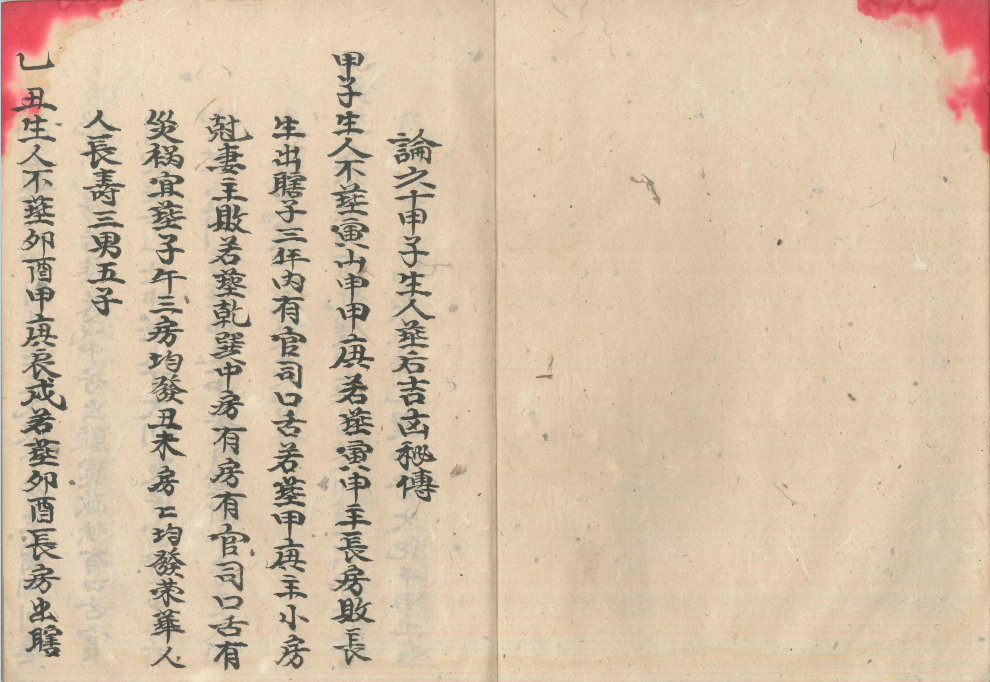 論六十甲子生人塟后吉凶秘傳
甲子生人不塟寅山申甲庚若塟寅申主長房敗長
生出瞎子三年内有官司口舌若塟甲庚主小房
尅妻主敗若塟乾巽中房有房有官司口舌有
災禍宜塟子午三房均發丑未房〻均發荣華人
人長壽三男五子
乙丑生人不塟卯酉甲庚辰戌若塟卯酉長房出瞎